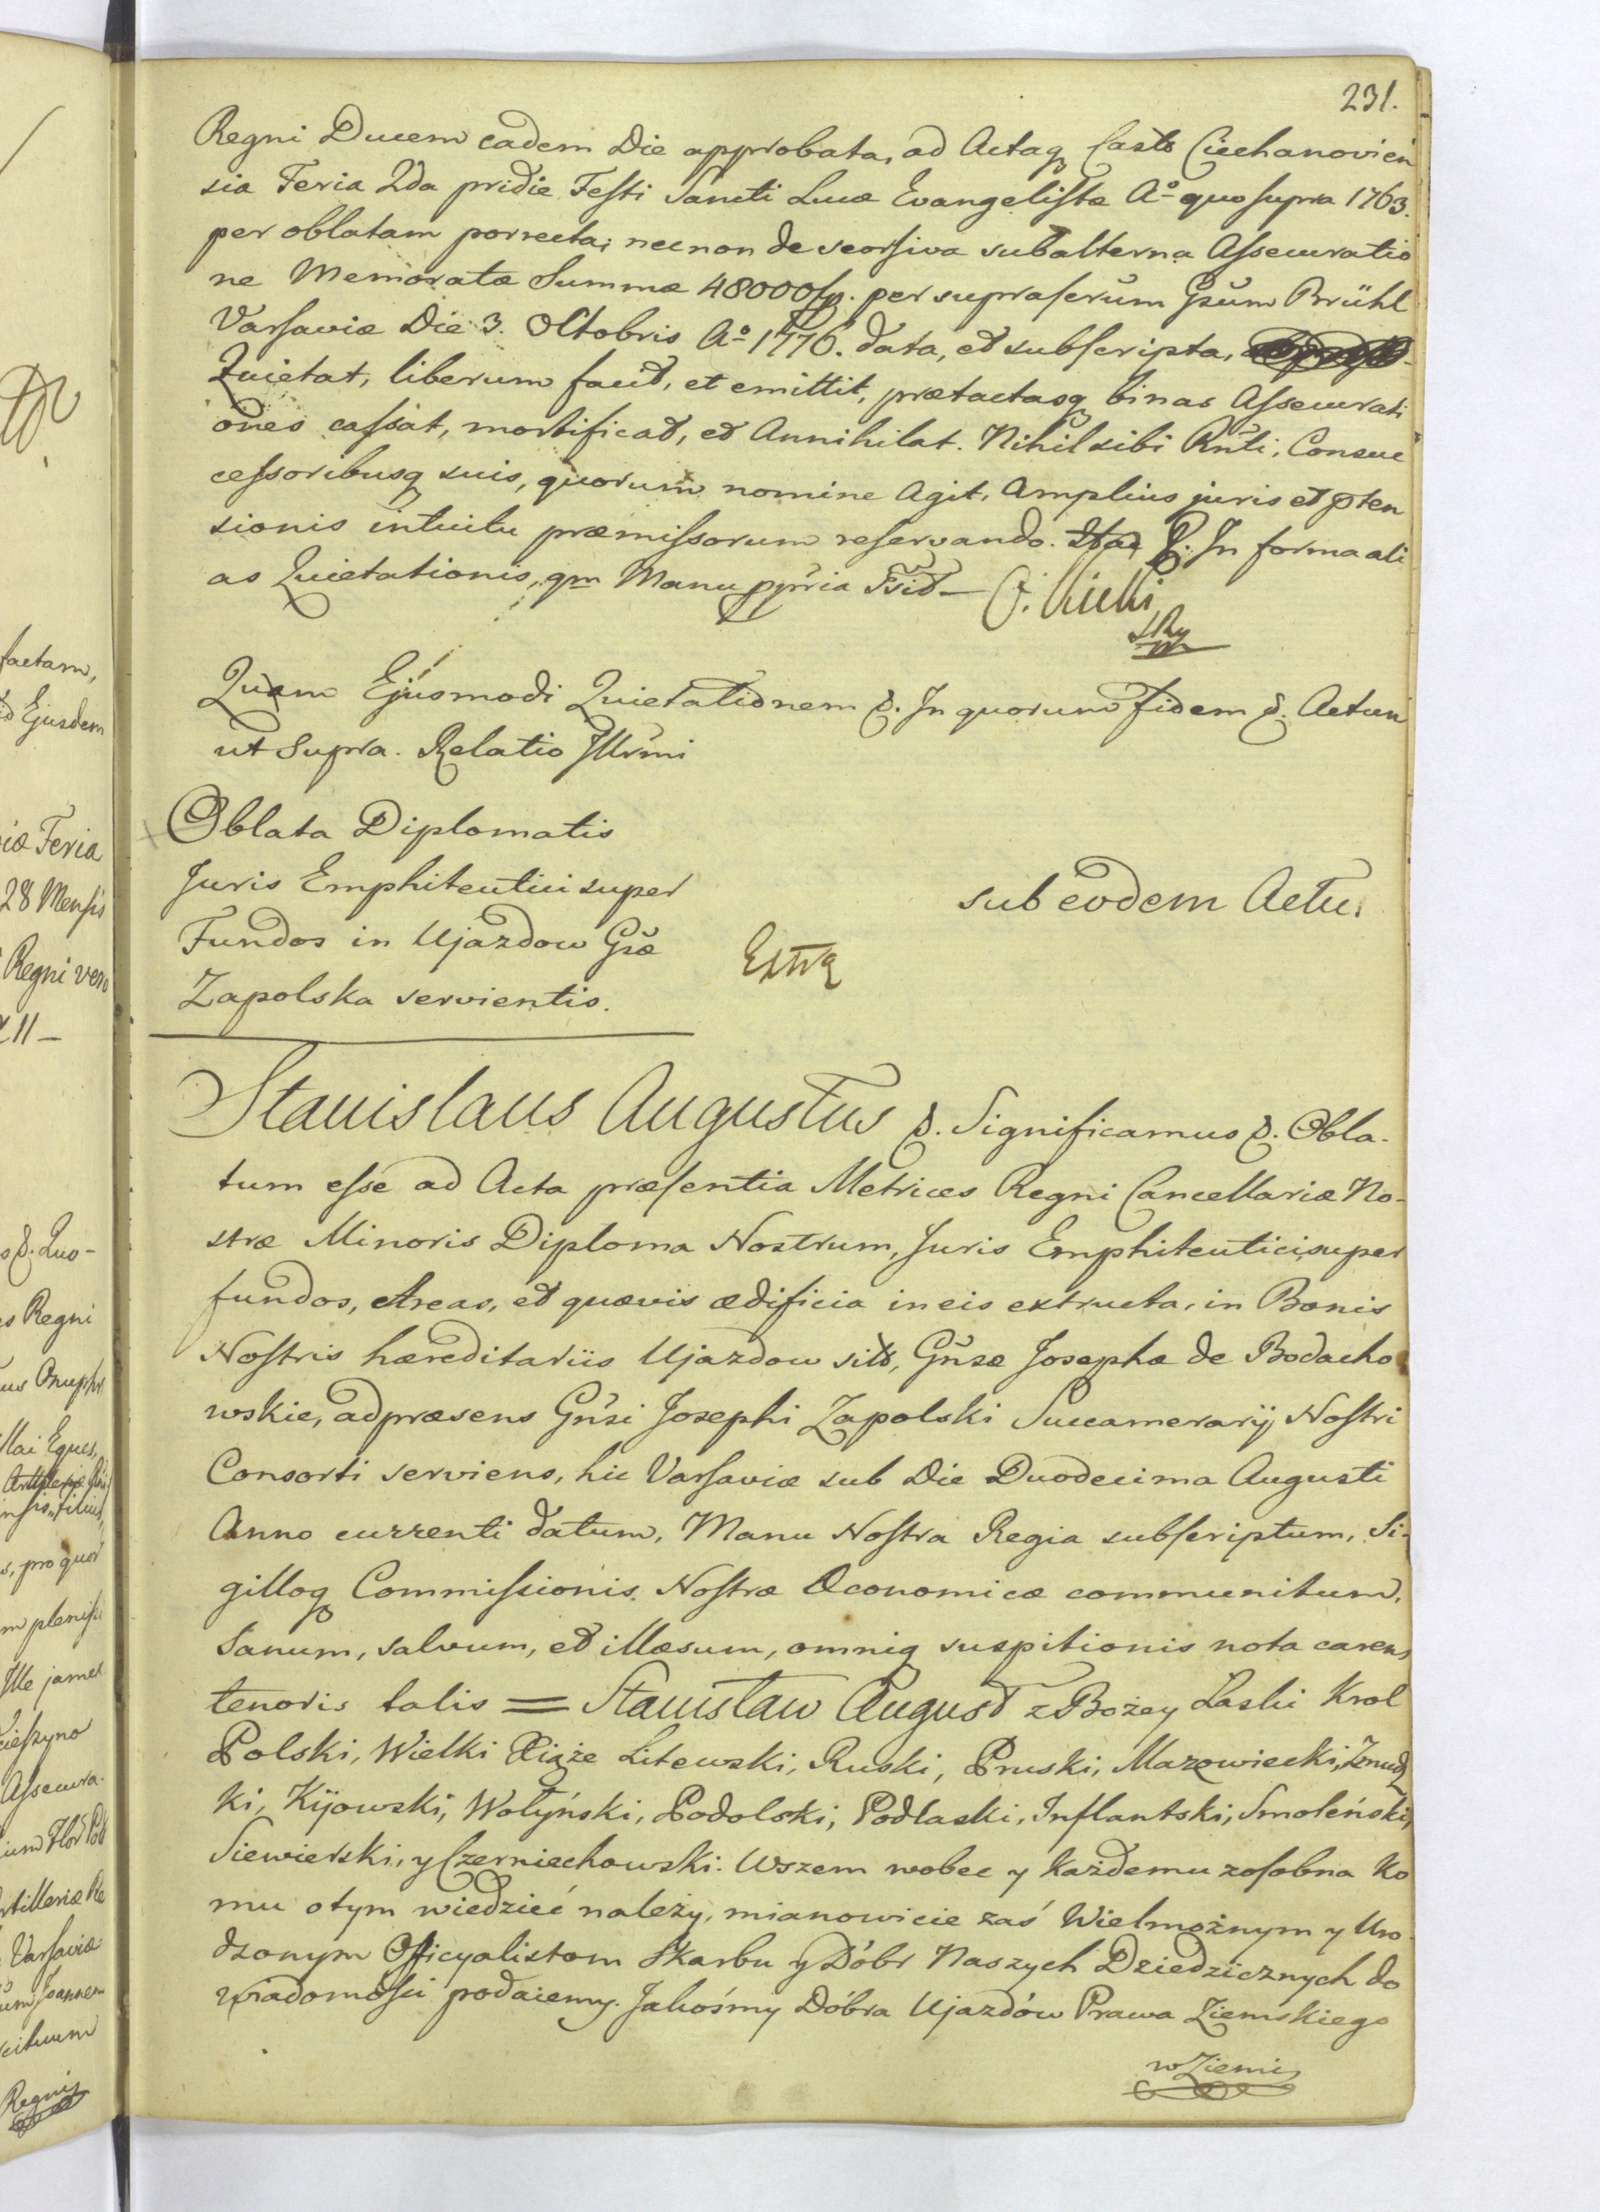 231.
Regni Ducem eadem Die approbata, ad Actaq Casts Ciechanovien
sia Feria 2da pridie Festi Sancti Lucæ Evangelistæ Aº quo supra 1763.
per oblatam porrecta; necnon de seorsiva subalterna Assecuratio
ne Memoratæ Summæ 48000 fp. per suprascrum Gsum Brühl
Varsaviæ Die 3. Octobris Aº 1776. data, et subscripta,
Quietat, liberum facit, et emittit, prætactasq binas Assecurati
ones cassat, mortificat, et Annihilat. Nihil sibi Rnti, Consuc
cessoribusq suis, quorum nomine Agit, Amplius juris et pten
sionis intuitu præmissorum reservando. In forma ali
as Quietationis, qm Manu ppria Fsit —
Quam Ejusmodi Quietationem &. In quorum fidem &. Actum
ut Supra. Relatio Illrmi
Oblata Diplomatis
Juris Emphiteutici super
Fundos in Ujazdow Gsæ
Zapolska servientis.
sub eodem Actu.
Extra
Stanislaus Augustus &. Significamus &. Obla-
tum esse ad Acta præsentia Metrices Regni Cancellariæ No-
stræ Minoris Diploma Nostrum, Juris Emphiteutici, super
fundos, Areas, et quævis ædificia in eis extructa, in Bonis
Nostris hæreditariis Ujazdow sits, Gnsæ Josephæ de Bodacho
wskie, ad præsens Gnsi Josephi Zapolski Succamerarij Nostri
Consorti serviens, hic Varsaviæ sub Die Duodecima Augusti
Anno currenti datum, Manu Nostra Regia subscriptum, Si-
gilloq Commissionis Nostræ Oeconomicæ communitum,
Sanum, salvum, et illæsum, omniq suspitionis nota carens
tenoris talis = Stanisław August z Bożey Łaski Krol
Polski, Wielki Xiąże Litewski, Ruski, Pruski, Mazowiecki, Zmudz
ki, Kijowski, Wołyński, Podolski, Podlaski, Inflantski, Smoleński,
Siewierski, y Czerniechowski. Wszem wobec y każdemu zosobna ko
mu o tym wiedzieć należy, mianowicie zaś Wielmożnym y Uro
dzonym Officyalistom Skarbu y Dóbr Naszych Dziedzicznych do
wiadomości podaiemy. Jakośmy Dóbra Ujazdów Prawa Ziemskiego
w Ziemi